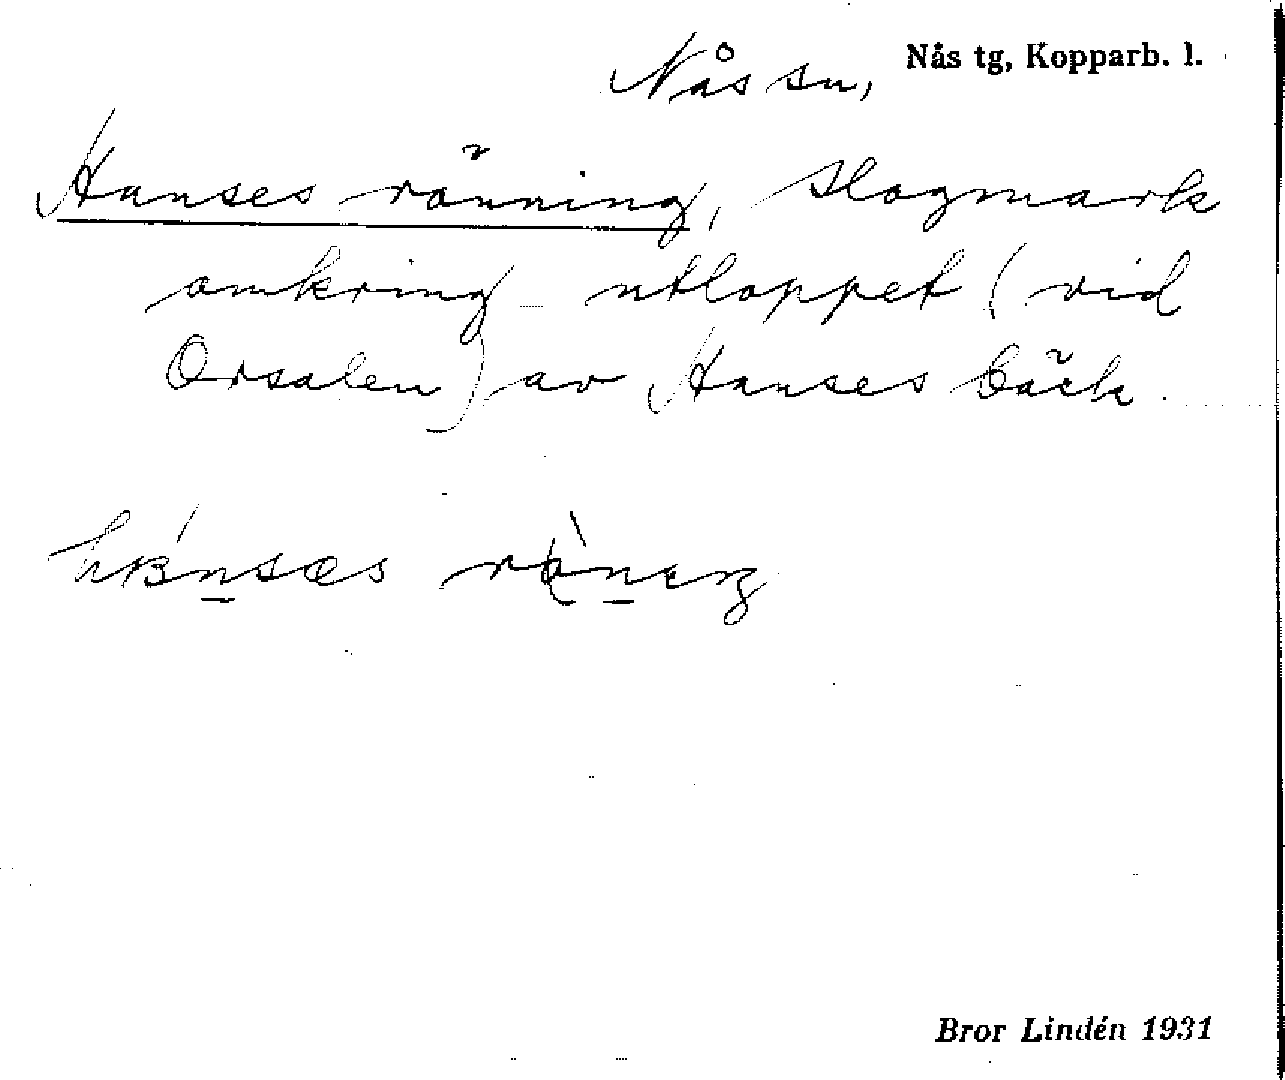 Nås sn, Nås tg, Kopparb. l.
Hanses rönning, slogmark
omkring utloppet (vid
Orsalen) av Hanses bäck.
Bror Lindén 1931